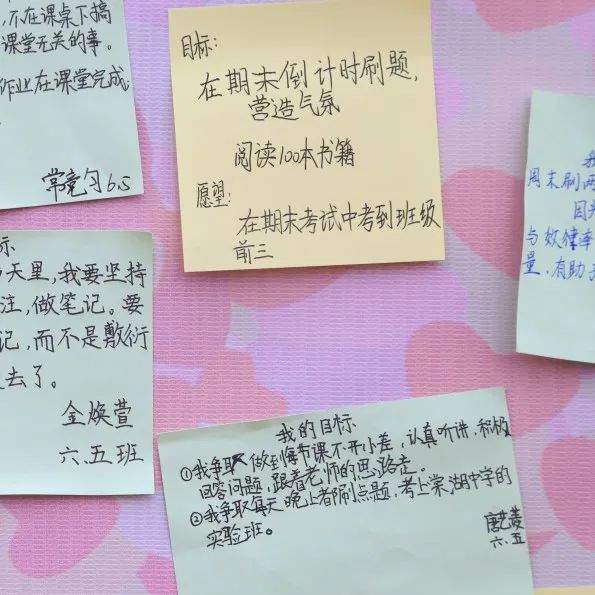 ，不在课桌下搞
课堂无关的事。
作业在课堂完成
常竞匀 6.5
目标：
在期末倒计时刷题，
营造气氛
阅读100本书籍
愿望：
在期末考试中考到班级
前三
周末刷两
因为
与效率
量，有助于
标
天里，我要坚持
注，做笔记。要
记，而不是敷衍
去了。
金焕萱
六、五班
我的目标
①我争取做到每节课不开小差，认真听讲，积极
回答问题，跟着老师的思路走。
②我争取每天晚上都刷点题，考上棠湖中学的
实验班。
六.五